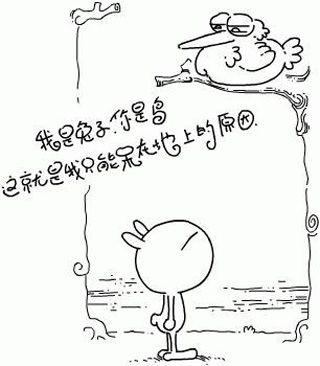 我是兔子.你是鸟
这就是我只能呆在地上的原因.